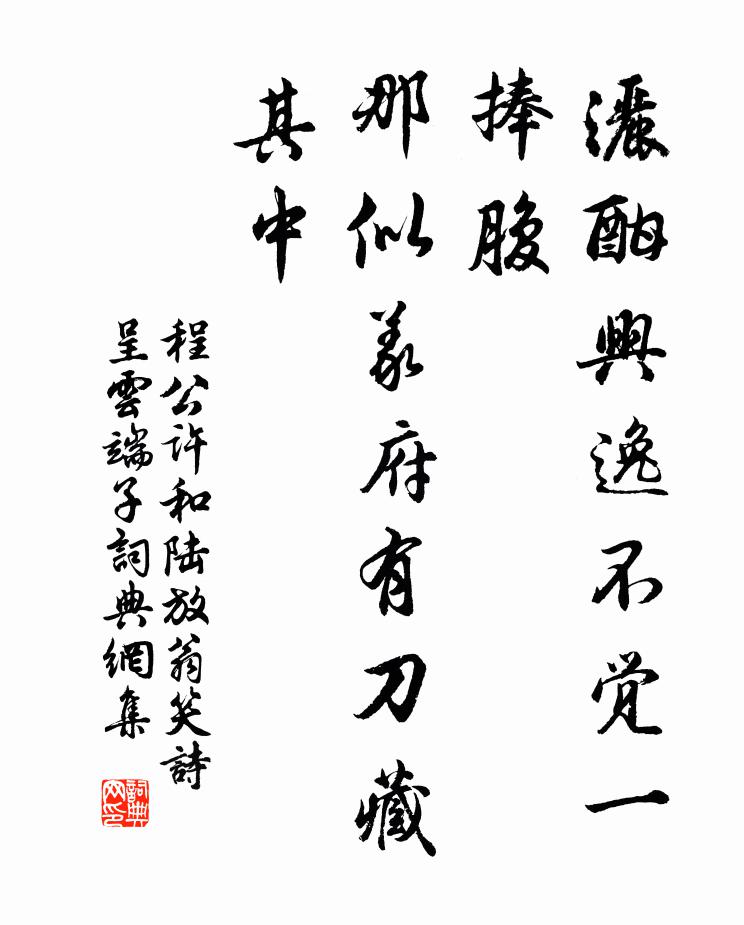 酣興逸不觉一
捧腹
那似義府有刀藏
其中
程公許和陆放翁笑詩
呈雲端子詞典網集
詞典
网印